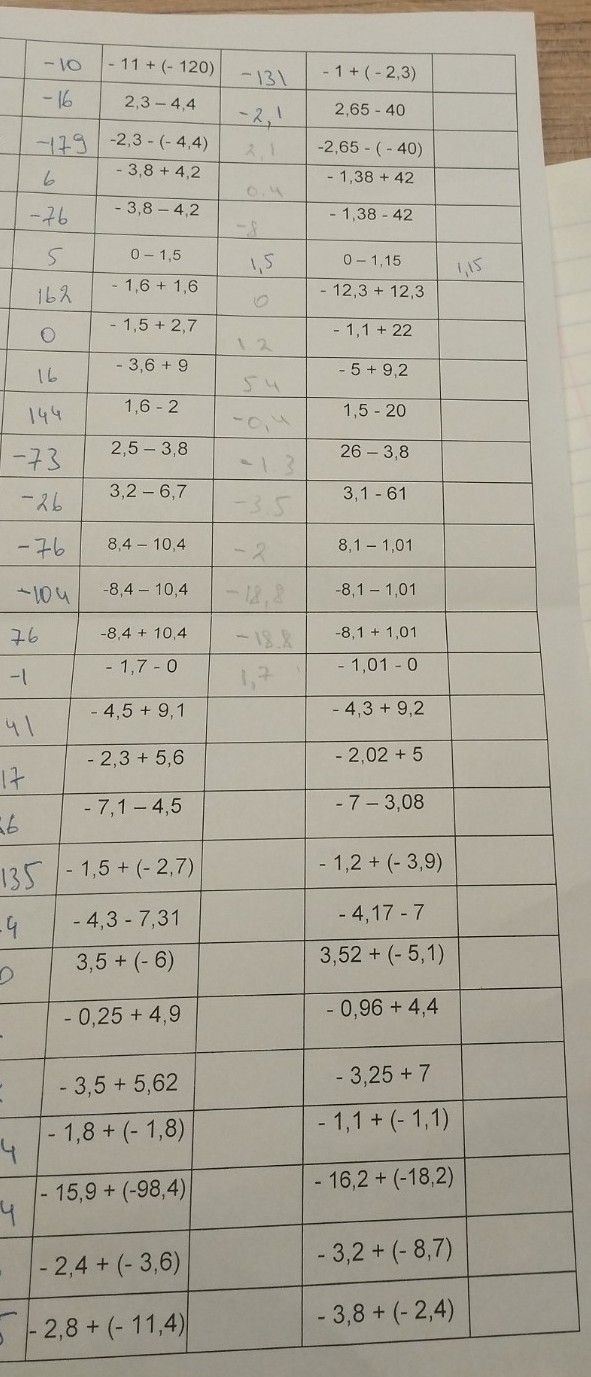 -10 - 11 + (- 120) -131 - 1 + ( - 2,3)
-16 2,3 – 4,4 -2,1 2,65 - 40
-179 -2,3 - (- 4,4) 2,1 -2,65 - ( - 40)
6 - 3,8 + 4,2 0.4 - 1,38 + 42
-76 - 3,8 – 4,2 -8 - 1,38 - 42
5 0 – 1,5 1,5 0 – 1,15 1,15
162 - 1,6 + 1,6 0 - 12,3 + 12,3
0 - 1,5 + 2,7 1 2 - 1,1 + 22
16 - 3,6 + 9 5 4 - 5 + 9,2
144 1,6 - 2 -0,4 1,5 - 20
-73 2,5 – 3,8 -1 3 26 – 3,8
-26 3,2 – 6,7 -3.5 3,1 - 61
-76 8,4 – 10,4 -2 8,1 – 1,01
-104 -8,4 – 10,4 -18,8 -8,1 – 1,01
76 -8,4 + 10,4 -18.8 -8,1 + 1,01
-1 - 1,7 - 0 1,7 - 1,01 - 0
41 - 4,5 + 9,1 - 4,3 + 9,2
17 - 2,3 + 5,6 - 2,02 + 5
6 - 7,1 – 4,5 - 7 – 3,08
135 - 1,5 + (- 2,7) - 1,2 + (- 3,9)
9 - 4,3 - 7,31 - 4,17 - 7
0 3,5 + (- 6) 3,52 + (- 5,1)
- 0,25 + 4,9 - 0,96 + 4,4
- 3,5 + 5,62 - 3,25 + 7
4 - 1,8 + (- 1,8) - 1,1 + (- 1,1)
4 - 15,9 + (-98,4) - 16,2 + (-18,2)
- 2,4 + (- 3,6) - 3,2 + (- 8,7)
5 - 2,8 + (- 11,4) - 3,8 + (- 2,4)